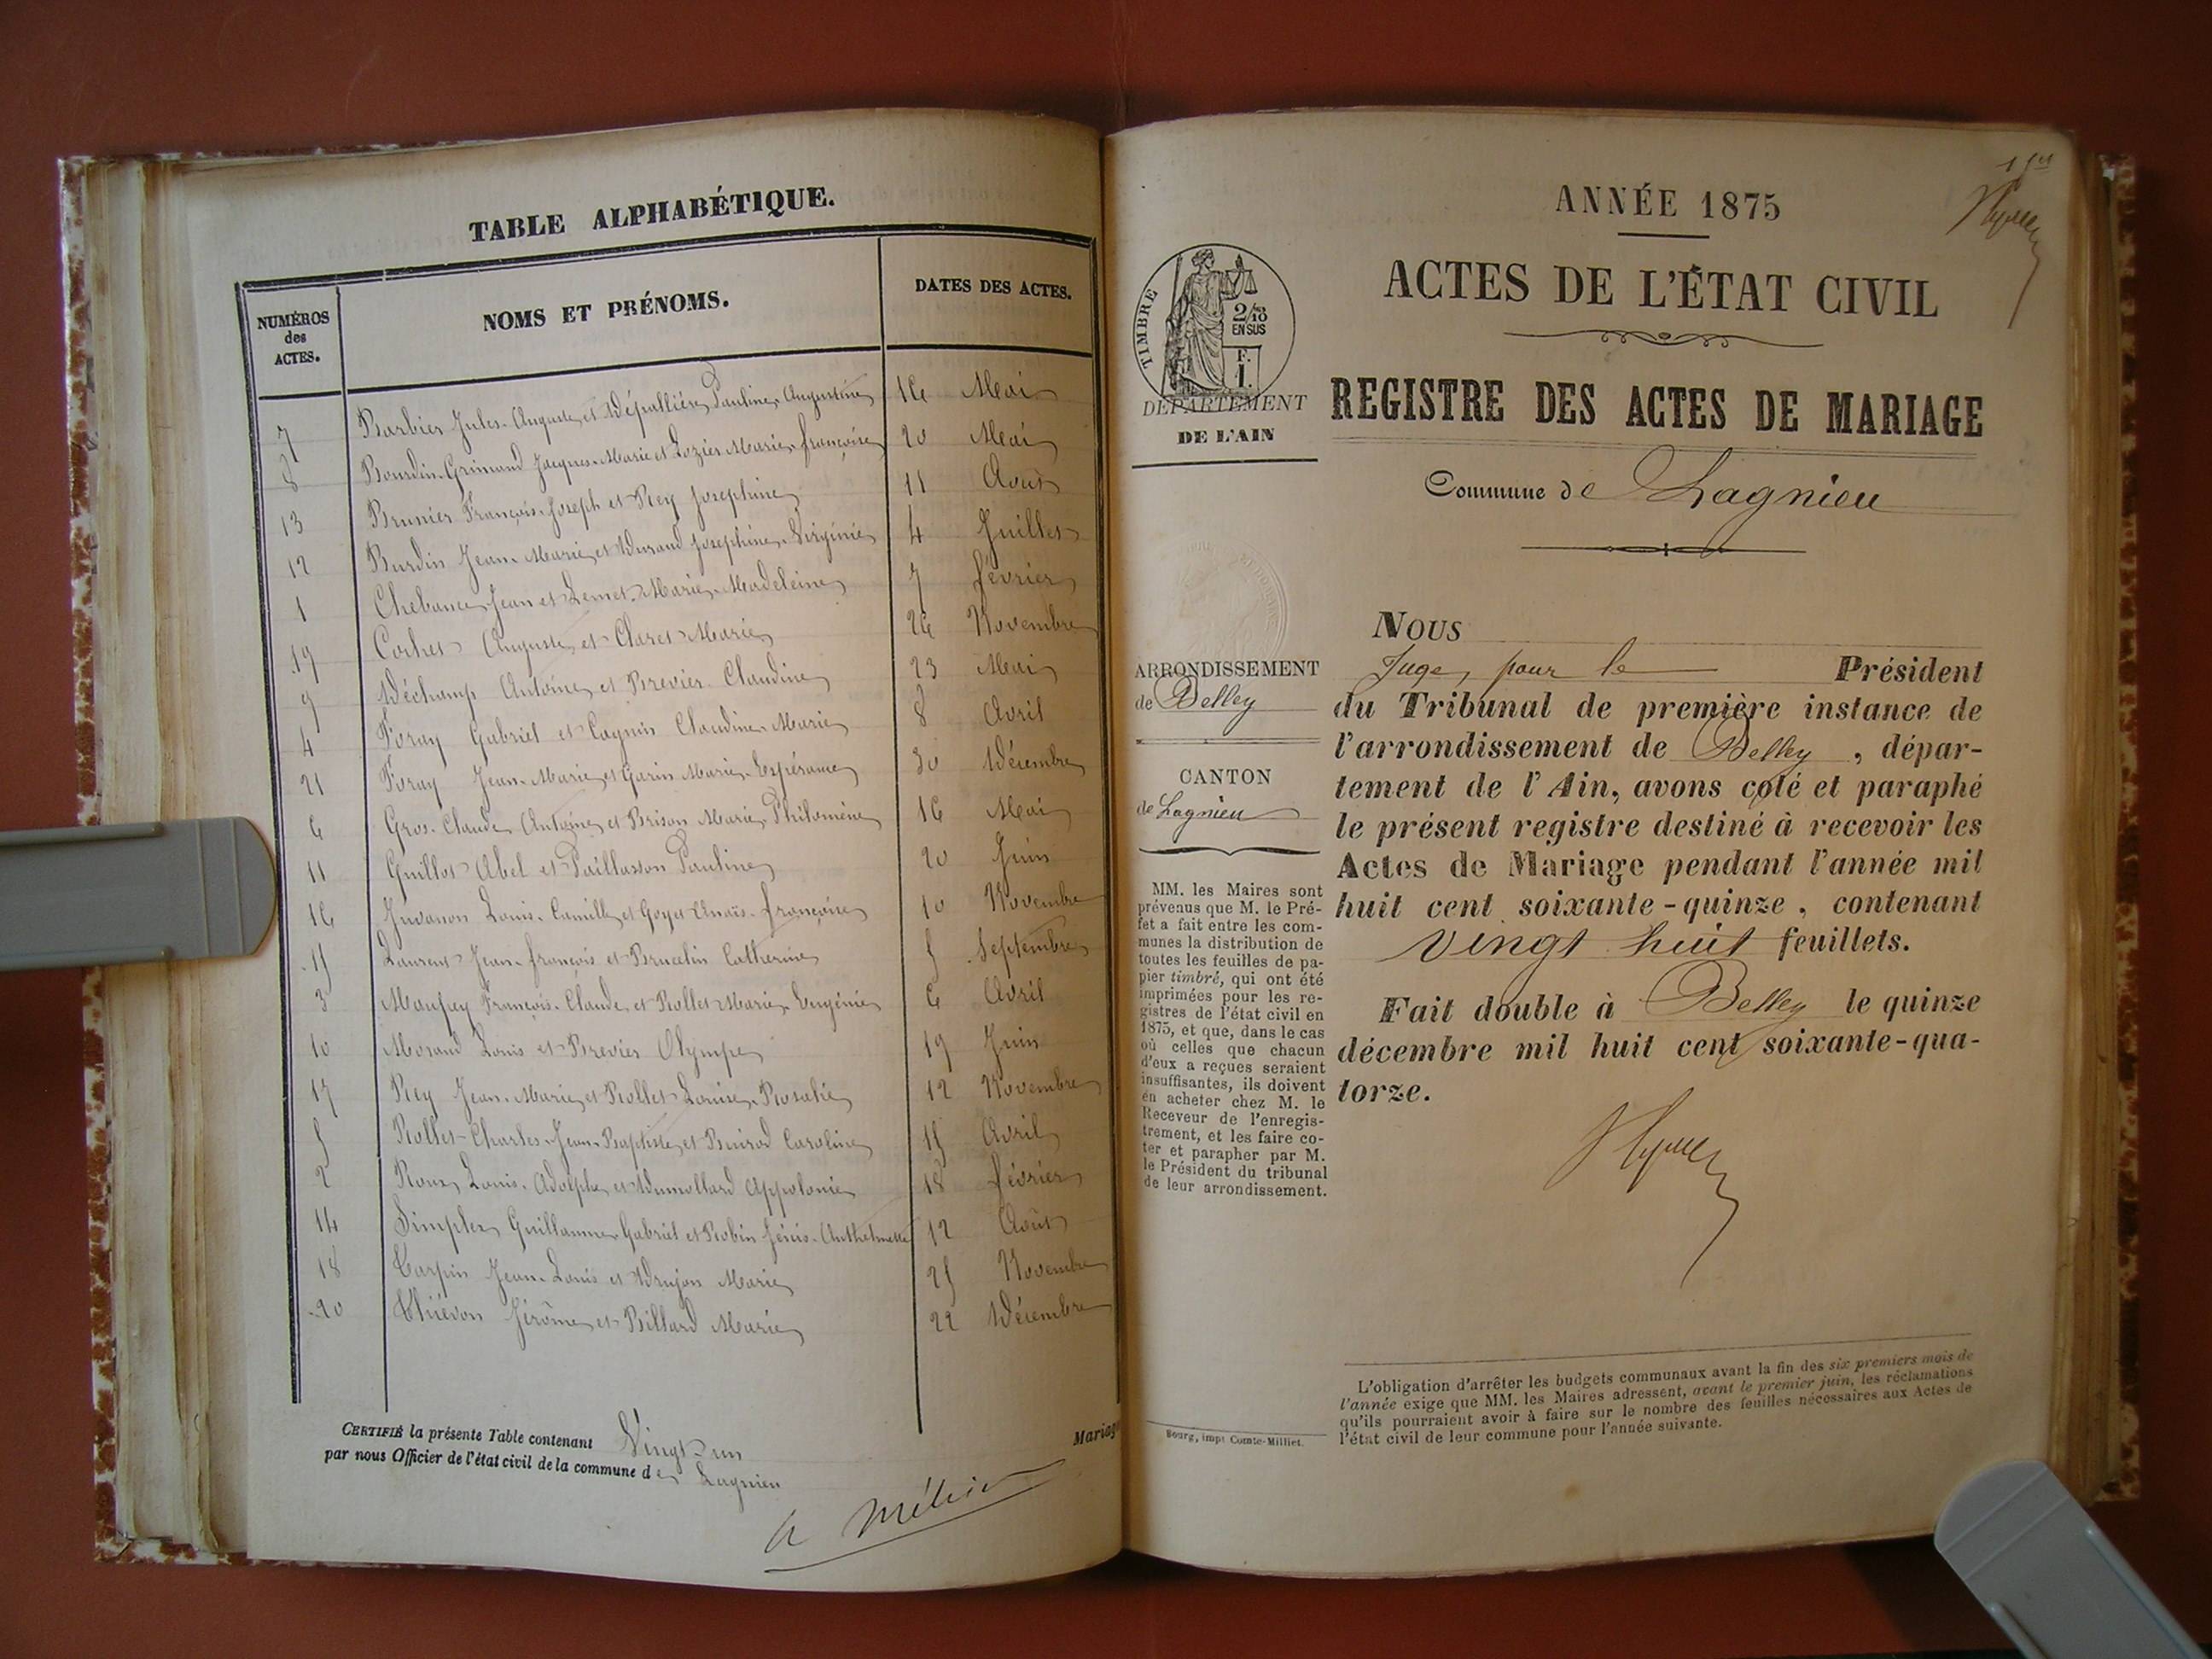 TABLE ALPHABÉTIQUE.
NUMÉROS des ACTES.
NOMS ET PRÉNOMS.
DATES DES ACTES.
7 Barbier Jules-Auguste et Dépallière Pauline-Augustine 16 Mai
8 Bourdin-Grimaud Jacques-Marie et Lozier Marie-françoise 20 Mai
13 Brunier François-Joseph et Rey Joséphine 11 Août
12 Burdin Jean-Marie et Durand Joséphine-Virginie 4 Juillet
1 Jean et Marie-Madeleine 7 février
19 Cochet Auguste et Claret Marie 26 Novembre
9 Déchamp Antoine et Brevier Claudine 23 Mai
4 Foray Gabriel et Claudine-Marie 8 Avril
21 Foray Jean-Marie et Garin Marie-Espérance 30 Décembre
6 Gros-Claude Antoine et Brison Marie-Philomène 16 Mai
11 Guillot Abel et Paillasson Pauline 20 Juin
16 Juvanon Louis-Camille et Goyet Anaïs-françoise 10 Novembre
15 Laurent Jean-françois et Brucelin Catherine 5 Septembre
3 Maupey François-Claude et Rollet Marie-Eugénie 6 Avril
10 Morand Louis et Brevier Olympe 19 Juin
17 Rey Jean-Marie et Rollet Louise-Rosalie 12 Novembre
5 Rollet-Charles-Jean-Baptiste et Caroline 15 Avril
2 Roux Louis-Adolphe et Dumollard Appolonie 18 février
14 Simplex Guillaume Gabriel et Robin Anthelmette 12 Août
18 Carpin Jean-Louis et Drujon Marie 25 Novembre
20 Thiévon Jérôme et Billard Marie 22 Décembre
CERTIFIÉ la présente Table contenant Vingt un Mariag
par nous Officier de l'état civil de la commune de Lagnieu
ANNÉE 1875
ACTES DE L'ÉTAT CIVIL
REGISTRE DES ACTES DE MARIAGE
Commune de Lagnieu
TIMBRE
2/10
EN SUS
F.
1.
DÉPARTEMENT
DE L'AIN
ARRONDISSEMENT
de Belley
CANTON
de Lagnieu
MM. les Maires sont
prévenus que M. le Pré-
fet a fait entre les com-
munes la distribution de
toutes les feuilles de pa-
pier timbré, qui ont été
imprimées pour les re-
gistres de l'état civil en
1875, et que, dans le cas
où celles que chacun
d'eux a reçues seraient
insuffisantes, ils doivent
en acheter chez M. le
Receveur de l'enregis-
trement, et les faire co-
ter et parapher par M.
le Président du tribunal
de leur arrondissement.
Bourg, impr Comte-Milliet.
NOUS
Juge, pour le Président
du Tribunal de première instance de
l'arrondissement de Belley, dépar-
tement de l'Ain, avons coté et paraphé
le présent registre destiné à recevoir les
Actes de Mariage pendant l'année mil
huit cent soixante-quinze, contenant
vingt huit feuillets.
Fait double à Belley le quinze
décembre mil huit cent soixante-qua-
torze.
L'obligation d'arrêter les budgets communaux avant la fin des six premiers mois de
l'année exige que MM. les Maires adressent, avant le premier juin, les réclamations
qu'ils pourraient avoir à faire sur le nombre des feuilles nécessaires aux Actes de
l'état civil de leur commune pour l'année suivante.